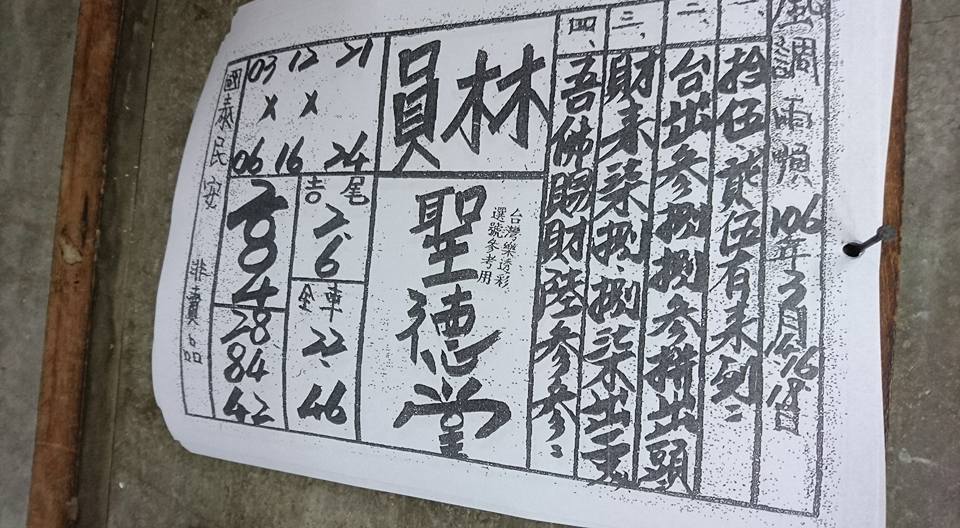 風調雨順 106年3月16 18日
一、拾伍貳伍有來列::
二、台出參捌捌參拼出頭
三、財來柒捌.捌柒來出
四、吾佛賜財陸參參::
員林
聖德堂
台灣樂透彩
選號參考用
03 12 21
X X
06 16 24
吉尾
2.6
全車
22
46
284
28
84
42
國泰民安 非賣品